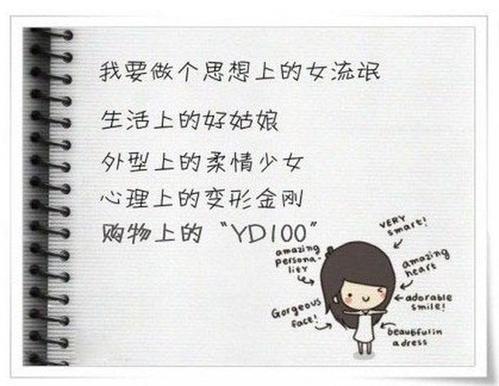 我要做个思想上的女流氓
生活上的好姑娘
外型上的柔情少女
心理上的变形金刚
购物上的“YD100”
VERY
smart!
amazing
persona-
lity
amazing
heart
adorable
smile!
Gorgeous
face!
beautifulin
adress